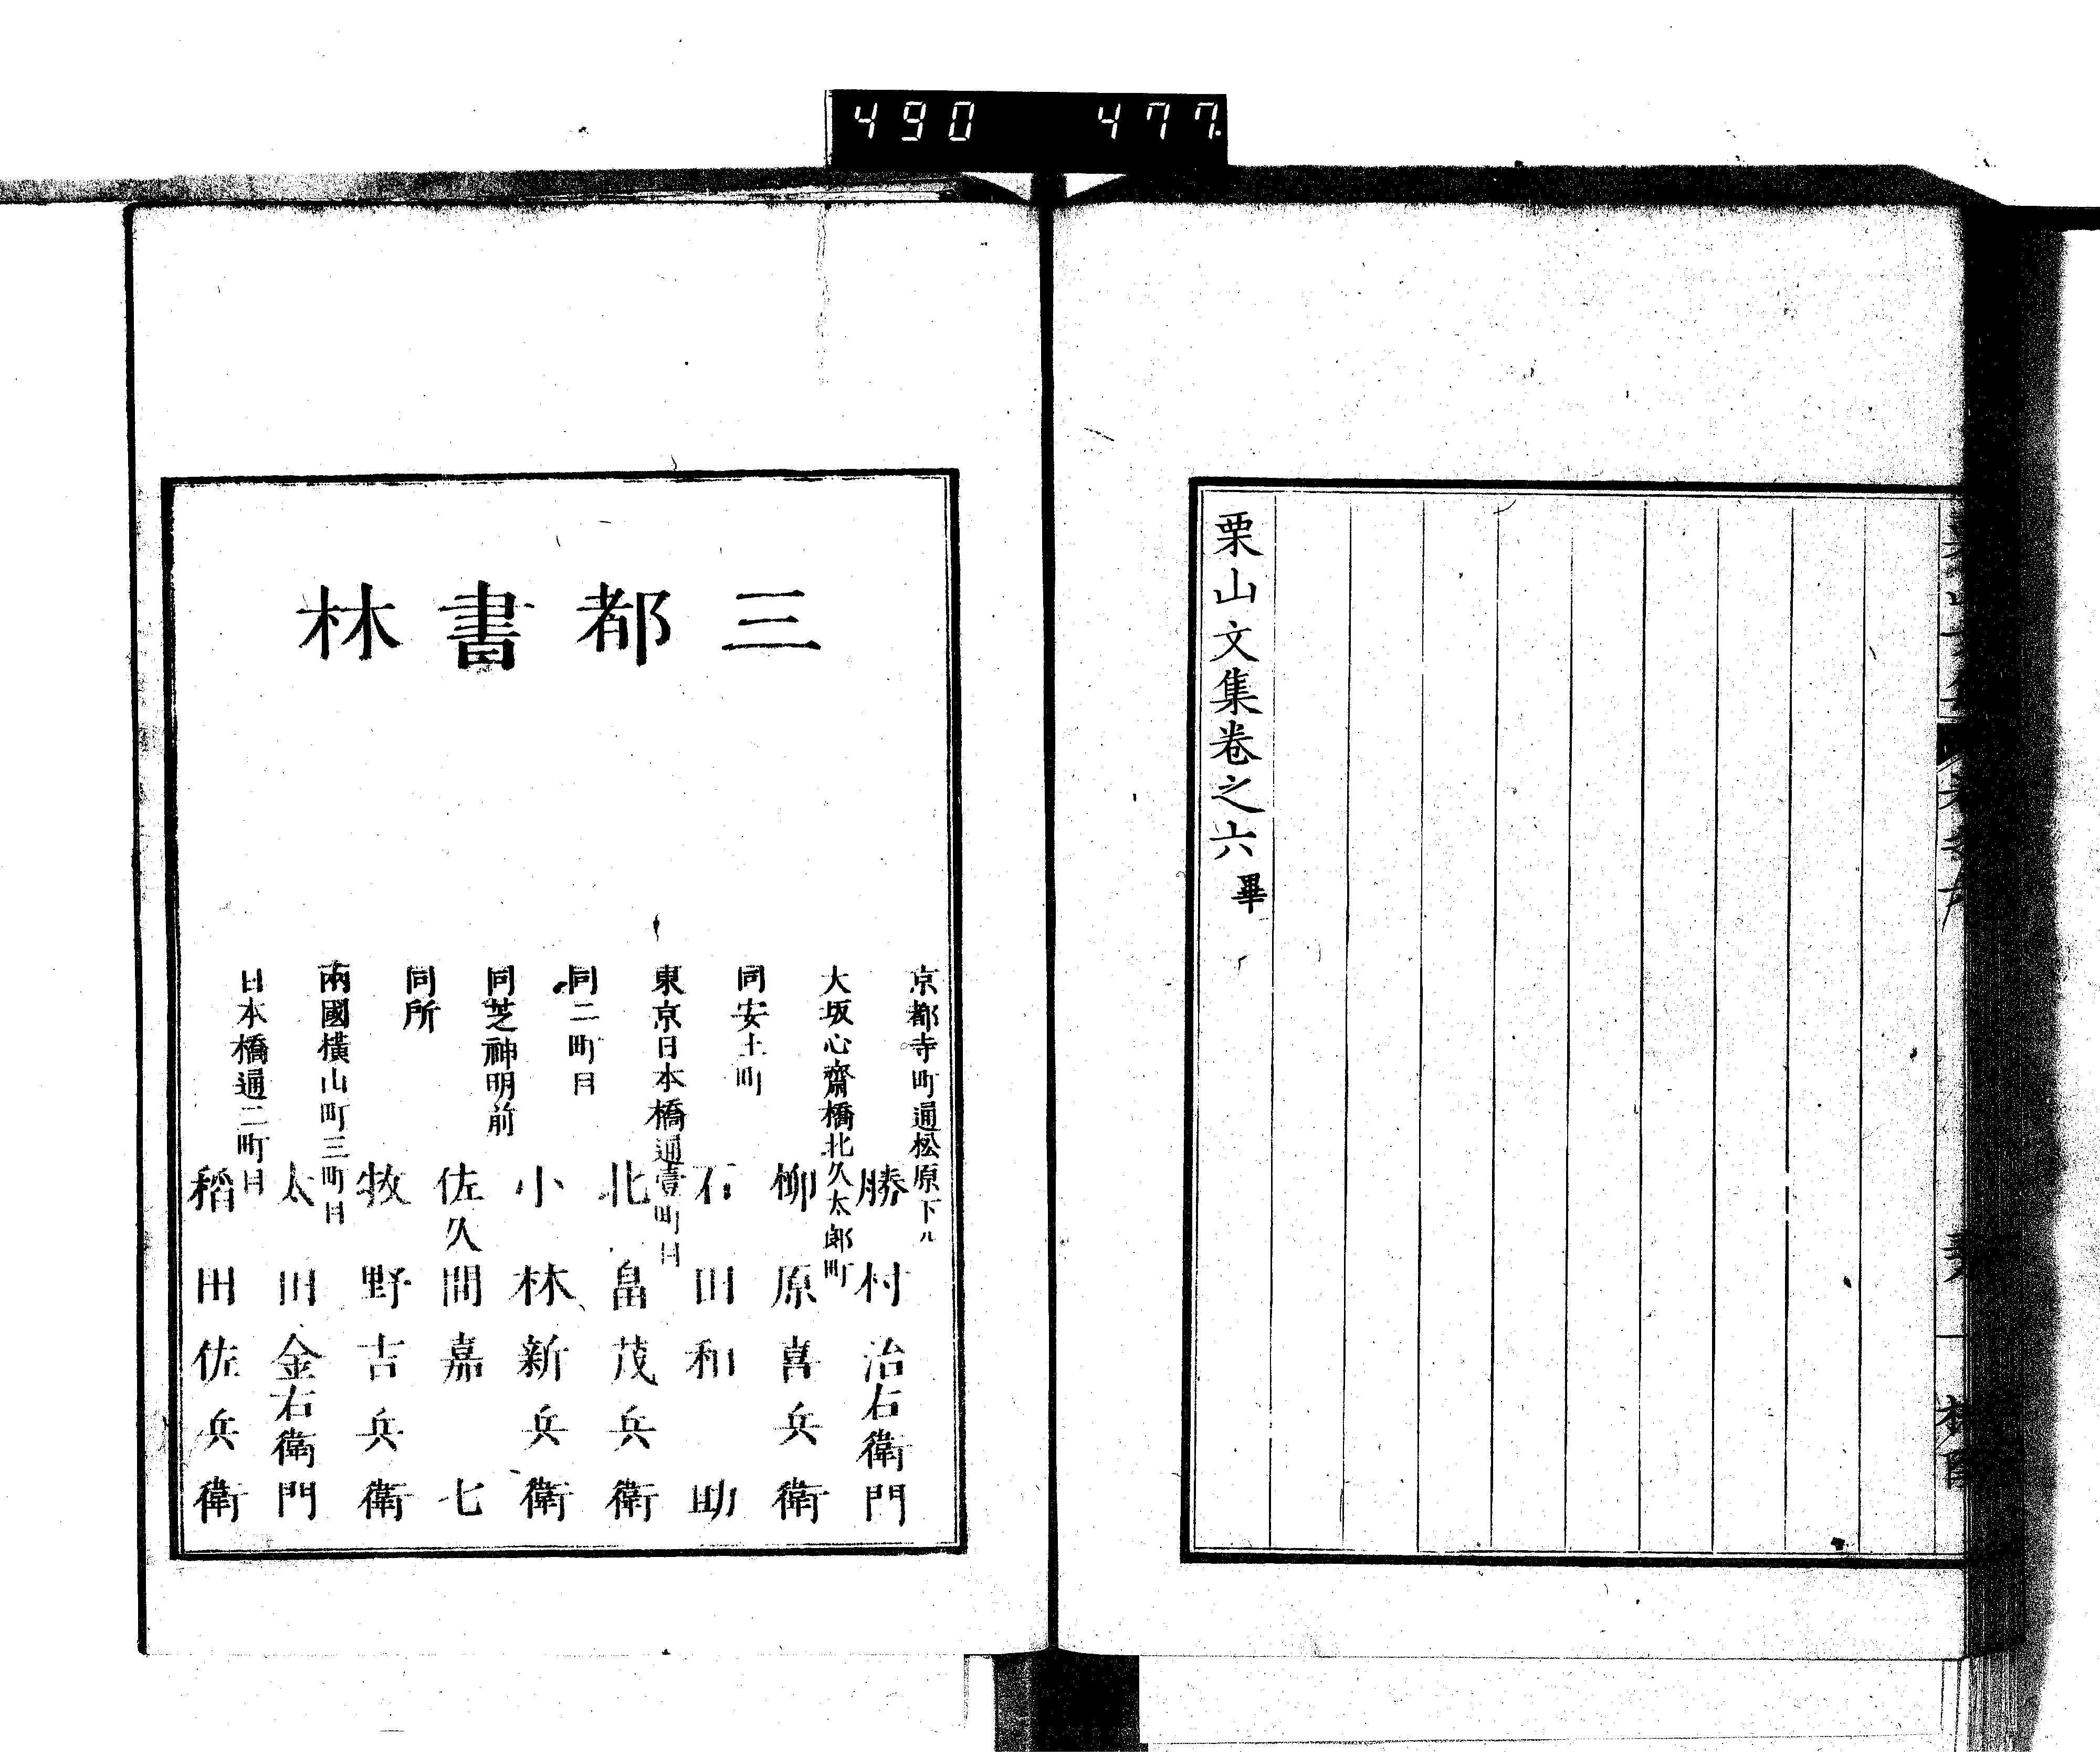 490 477
栗山文集卷之六畢
三都書林
京都寺町通松原下ル
勝村治右衛門
大坂心齋橋北久太郎町
柳原喜兵衛
同安土町
石田和助
東京日本橋通壹町目
北畠茂兵衛
同二町目
小林新兵衛
同芝神明前
佐久間嘉七
同所
牧野吉兵衛
兩國橫山町三町目
太田金右衛門
日本橋通二町目
稻田佐兵衛